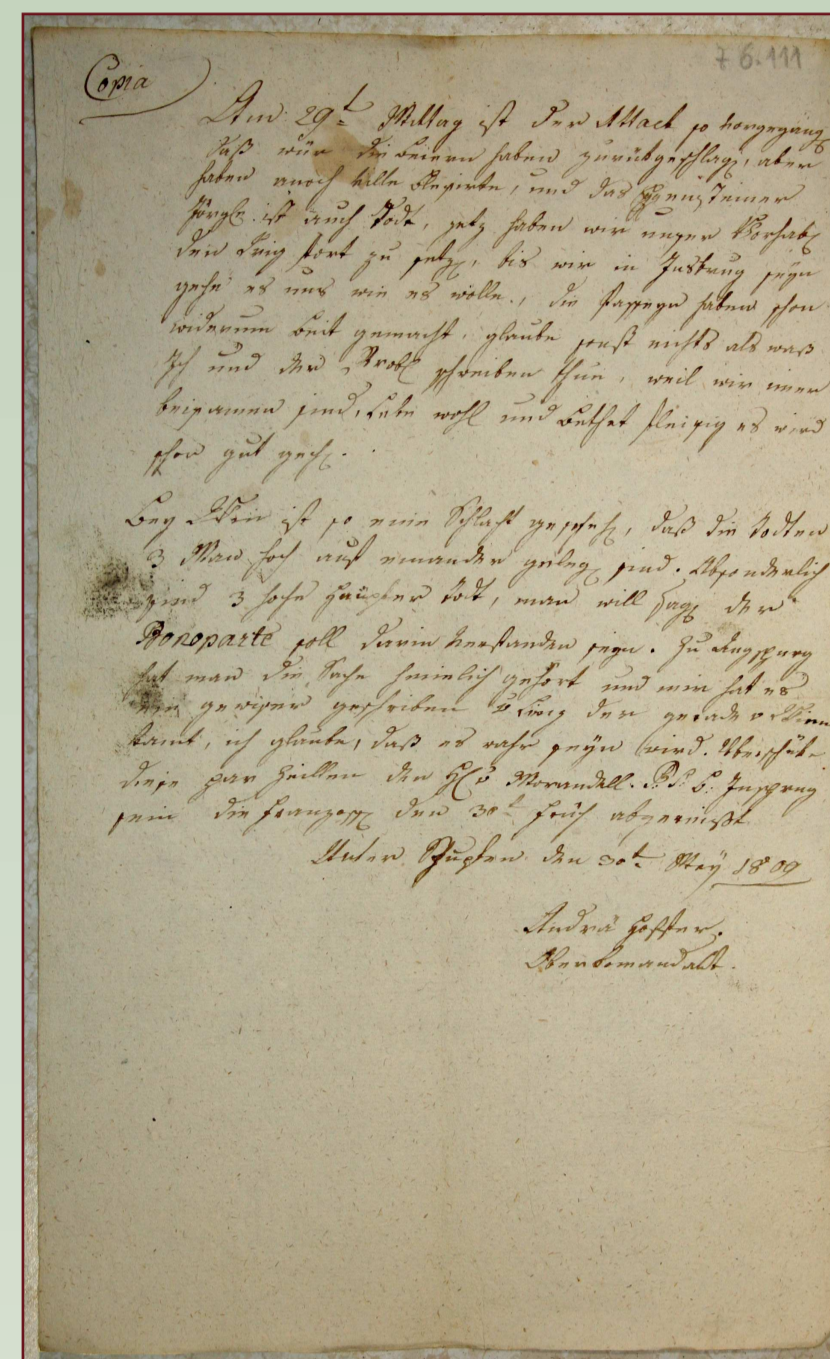 Copia
7 6.111
Am 29t Mittag ist der Attack so vorgegang
daß wür die beiern haben zurükgeschlag, aber
haben anoch ville Blesirte, und das
Jörgle ist auch Todt, jetz haben wir unser Vorhab
den krig fort zu setz, bis wir in Insbrug seyn
gehe es uns wie es wolle., die Passeyr haben schon
widerum beit gemacht, glaube sonst nichts als waß
Ich und der schreiben thue, weil wir imer
beisamen sind, Lebe wohl und bethet fleisig es wird
schon gut geh.
bey Wien ist so eine Schlacht gescheh, daß die Todten
3 Man hoch auf einander geleg sind. Absonderlich
sind 3 hohe Häupter todt, man will sag der
Bonoparte soll darin verstanden seyn. Zu Augspurg
hat man die Sache heimlich gehört und mir hat es
ein gewiser geschriben der gerade v Wien
kamt, ich glaube, daß es wahr seyn wird. Überschike
diese par Zeillen den H v Morandell. P: S: b: Insprug
sein die Franzoss den 30t früh abgereißt
Unter Schupfen den 30t May 1809
Andrä Hoffer.
Oberkomandant.